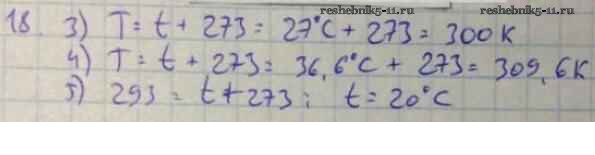 reshebnik5-11.ru reshebnik5-11.ru
18. 3) T = t + 273 = 27°C + 273 = 300 K
4) T = t + 273 = 36,6°C + 273 = 309,6 K
5) 293 = t + 273; t = 20°C